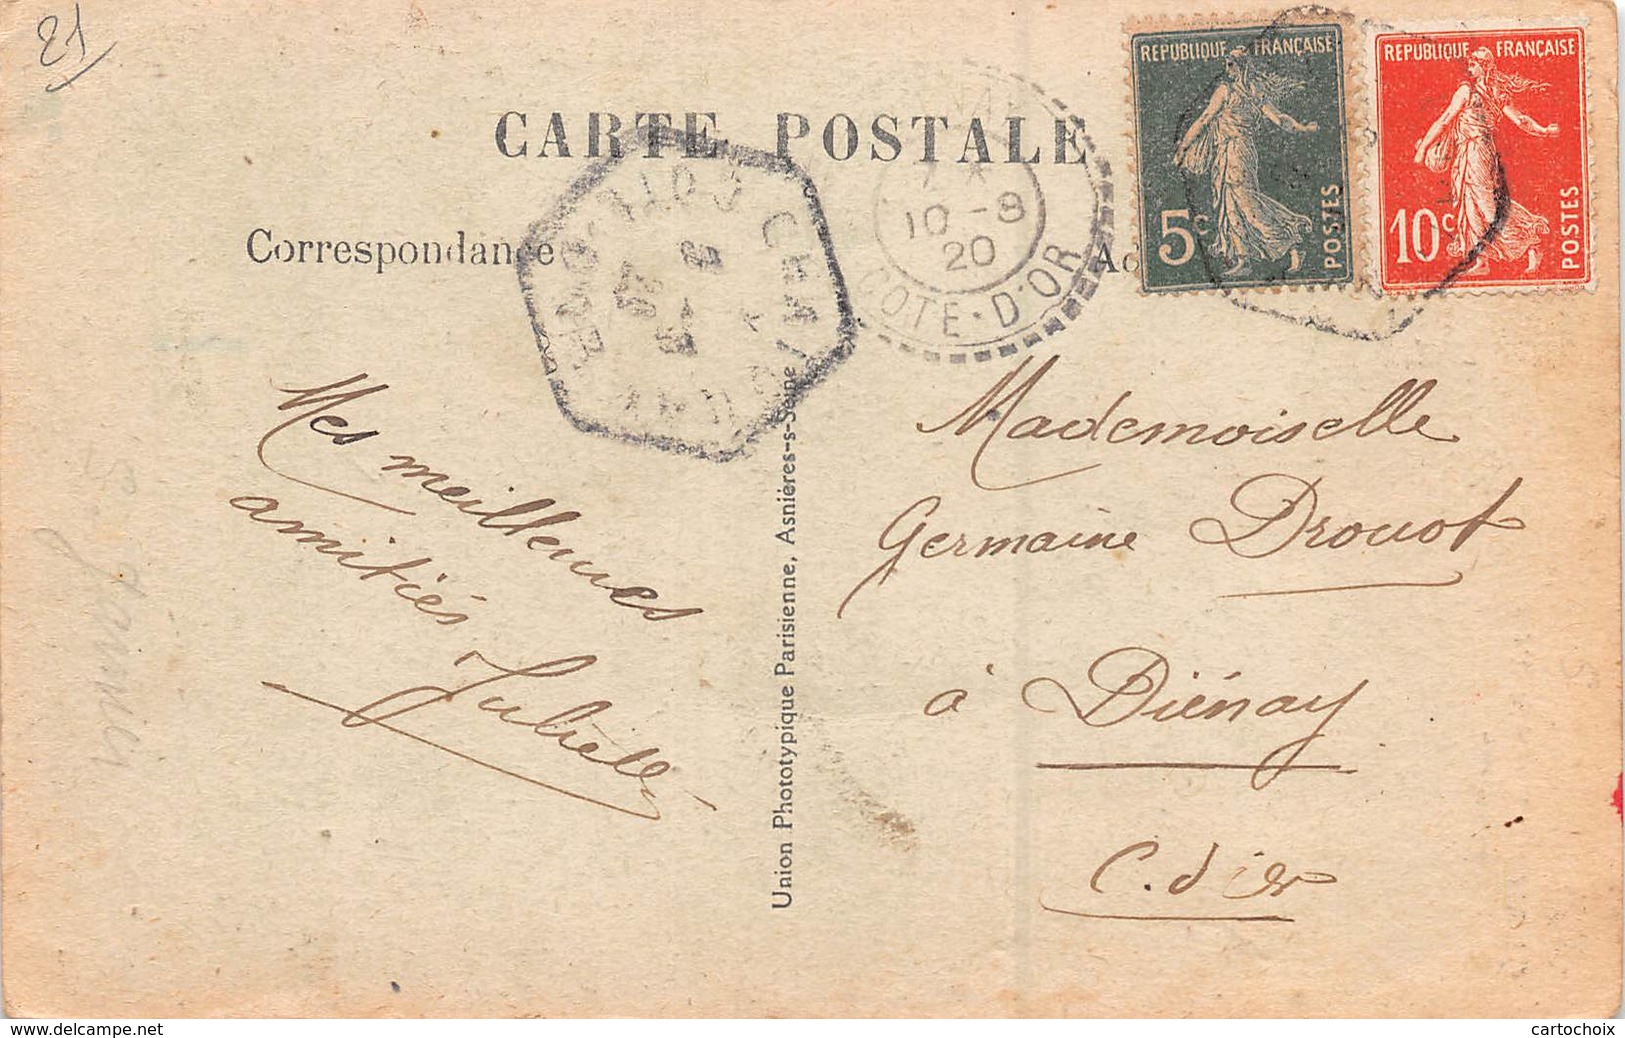 21
CARTE POSTALE
REPUBLIQUE FRANÇAISE
5c
POSTES
REPUBLIQUE FRANÇAISE
10c
POSTES
10 - 8
20
COTE-D'OR
Correspondance
Mes meilleures
amitiés
Juliette
Union Phototypique Parisienne, Asnières-s-Seine
Mademoiselle
Germaine Drouot
à Diénay
C. d'or
www.delcampe.net
cartochoix